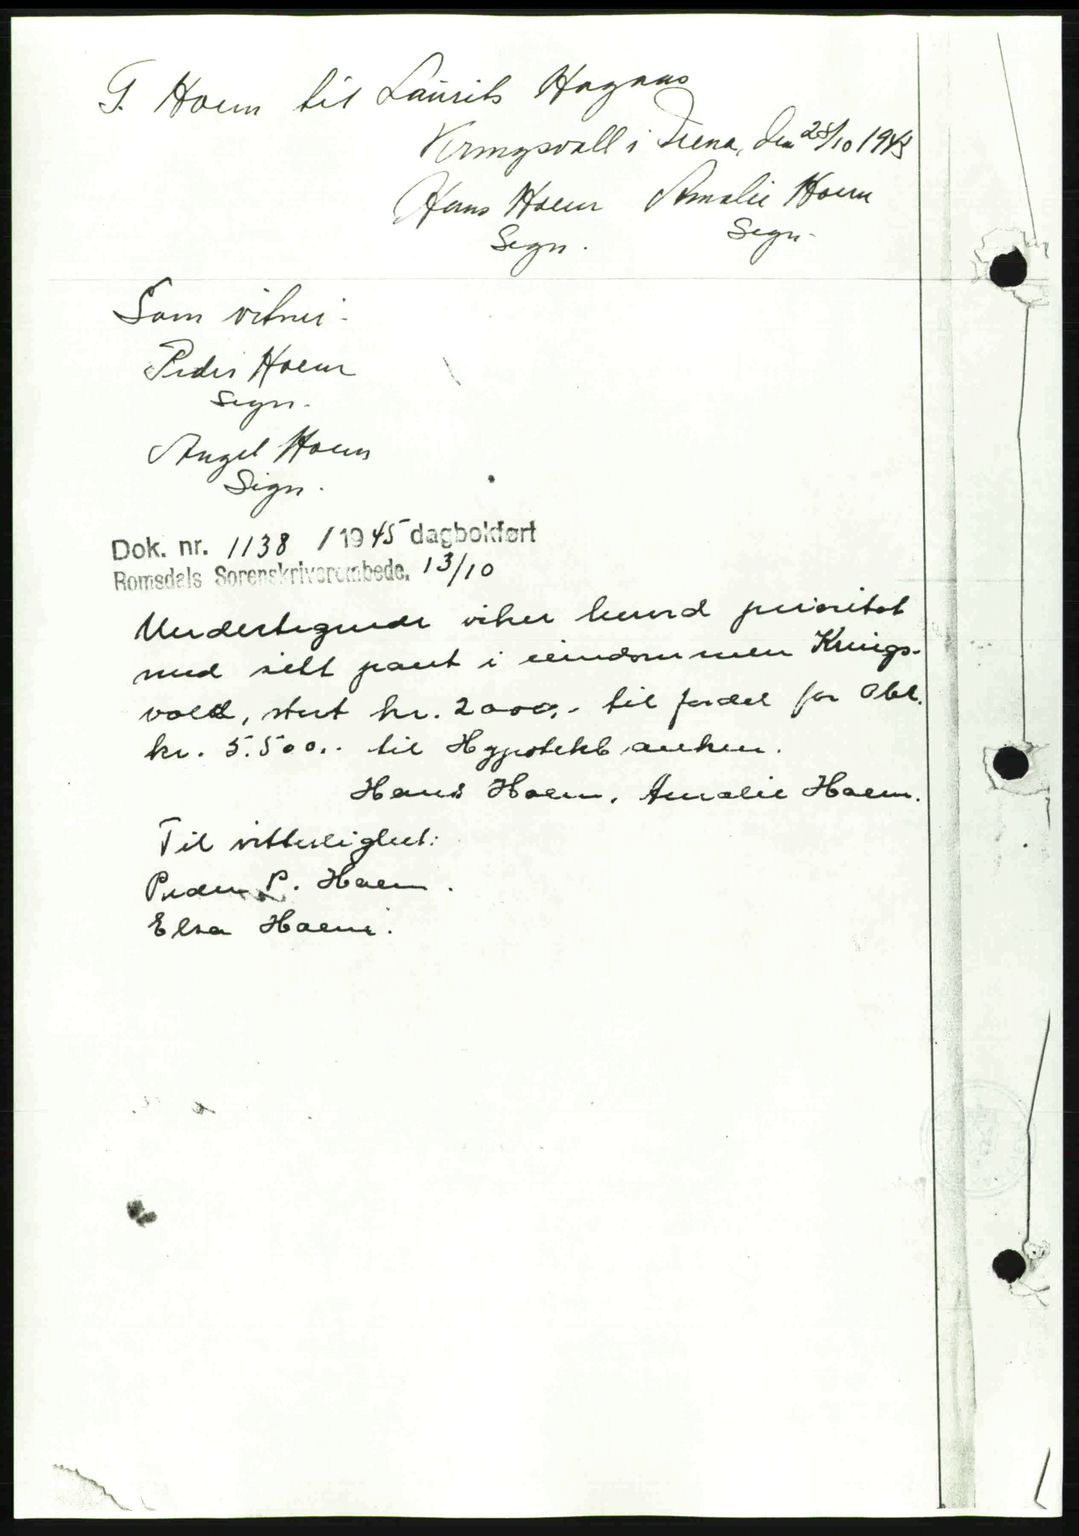 T. Hoem til Laurits Hagnes
Kringsvoll i Frena, den 28/10 1943
Hans Hoem Amalie Hoem
Sign. Sign.
Som vitner.
Peder Hoem
Sign.
Angel Hoem
Sign.
Dok. nr. 1138 / 1945 dagbokført
Romsdals Sorenskriverembede. 13/10
Undertegnede viker herved prioritet
med sitt pant i eiendommen Krings-
vold, stort kr. 2000,- til fordel for Obl.
kr. 5.500.- til Hypotekbanken.
Hans Hoem. Amalie Hoem.
Til vitterlighet:
Peder P. Hoem.
Elsa Hoem.